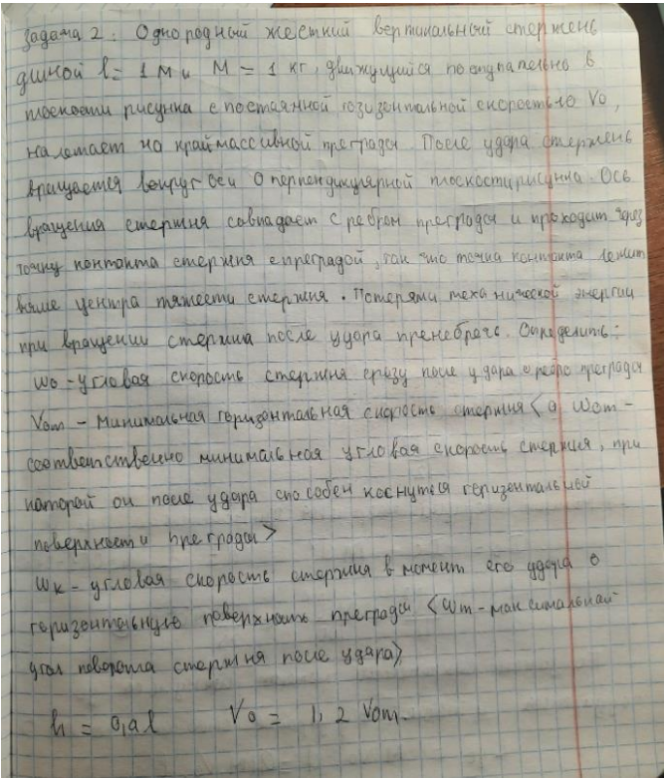 Задача 2. Однородный жесткий вертикальный стержень
длиной l = 1 м и M = 1 кг, движущийся поступательно в
плоскости рисунка с постоянной горизонтальной скоростью V0,
налетает на край массивной преграды. После удара стержень
вращается вокруг оси O перпендикулярной плоскости рисунка. Ось
вращения стержня совпадает с ребром преграды и проходит через
точку контакта стержня с преградой, так что точка контакта лежит
ближе центра тяжести стержня. Потерями механической энергии
при вращении стержня после удара пренебречь. Определить:
ω0 - угловая скорость стержня сразу после удара о ребро преграды
V0m - минимальная горизонтальная скорость стержня <а ω0m -
соответственно минимальная угловая скорость стержня, при
которой он после удара способен коснуться горизонтальной
поверхности преграды>
ωк - угловая скорость стержня в момент его удара о
горизонтальную поверхность преграды <ωm - максимальный
угол поворота стержня после удара>
h = 0,al V0 = 1,2 V0m.